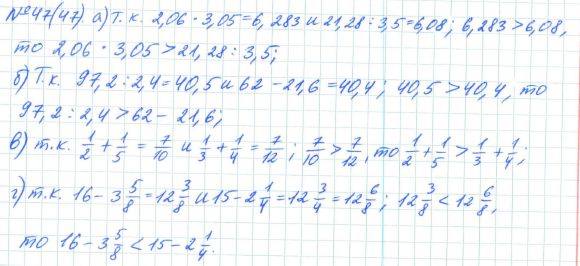 №47(47) а) Т.к. 2,06 · 3,05 = 6,283 и 21,28 : 3,5 = 6,08; 6,283 > 6,08,
то 2,06 · 3,05 > 21,28 : 3,5;
б) Т.к. 97,2 : 2,4 = 40,5 и 62 - 21,6 = 40,4; 40,5 > 40,4, то
97,2 : 2,4 > 62 - 21,6;
в) т.к. 1/2 + 1/5 = 7/10 и 1/3 + 1/4 = 7/12; 7/10 > 7/12, то 1/2 + 1/5 > 1/3 + 1/4;
г) т.к. 16 - 3 5/8 = 12 3/8 и 15 - 2 1/4 = 12 3/4 = 12 6/8; 12 3/8 < 12 6/8,
то 16 - 3 5/8 < 15 - 2 1/4.